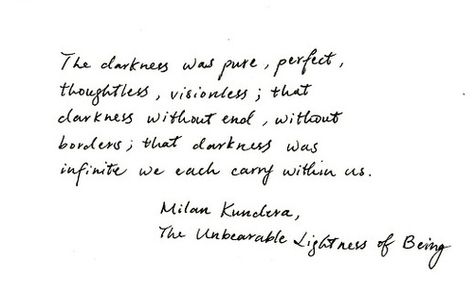 The darkness was pure, perfect,
thoughtless, visionless; that
darkness without end, without
borders; that darkness was
infinite we each carry within us.
Milan Kundera,
The Unbearable Lightness of Being